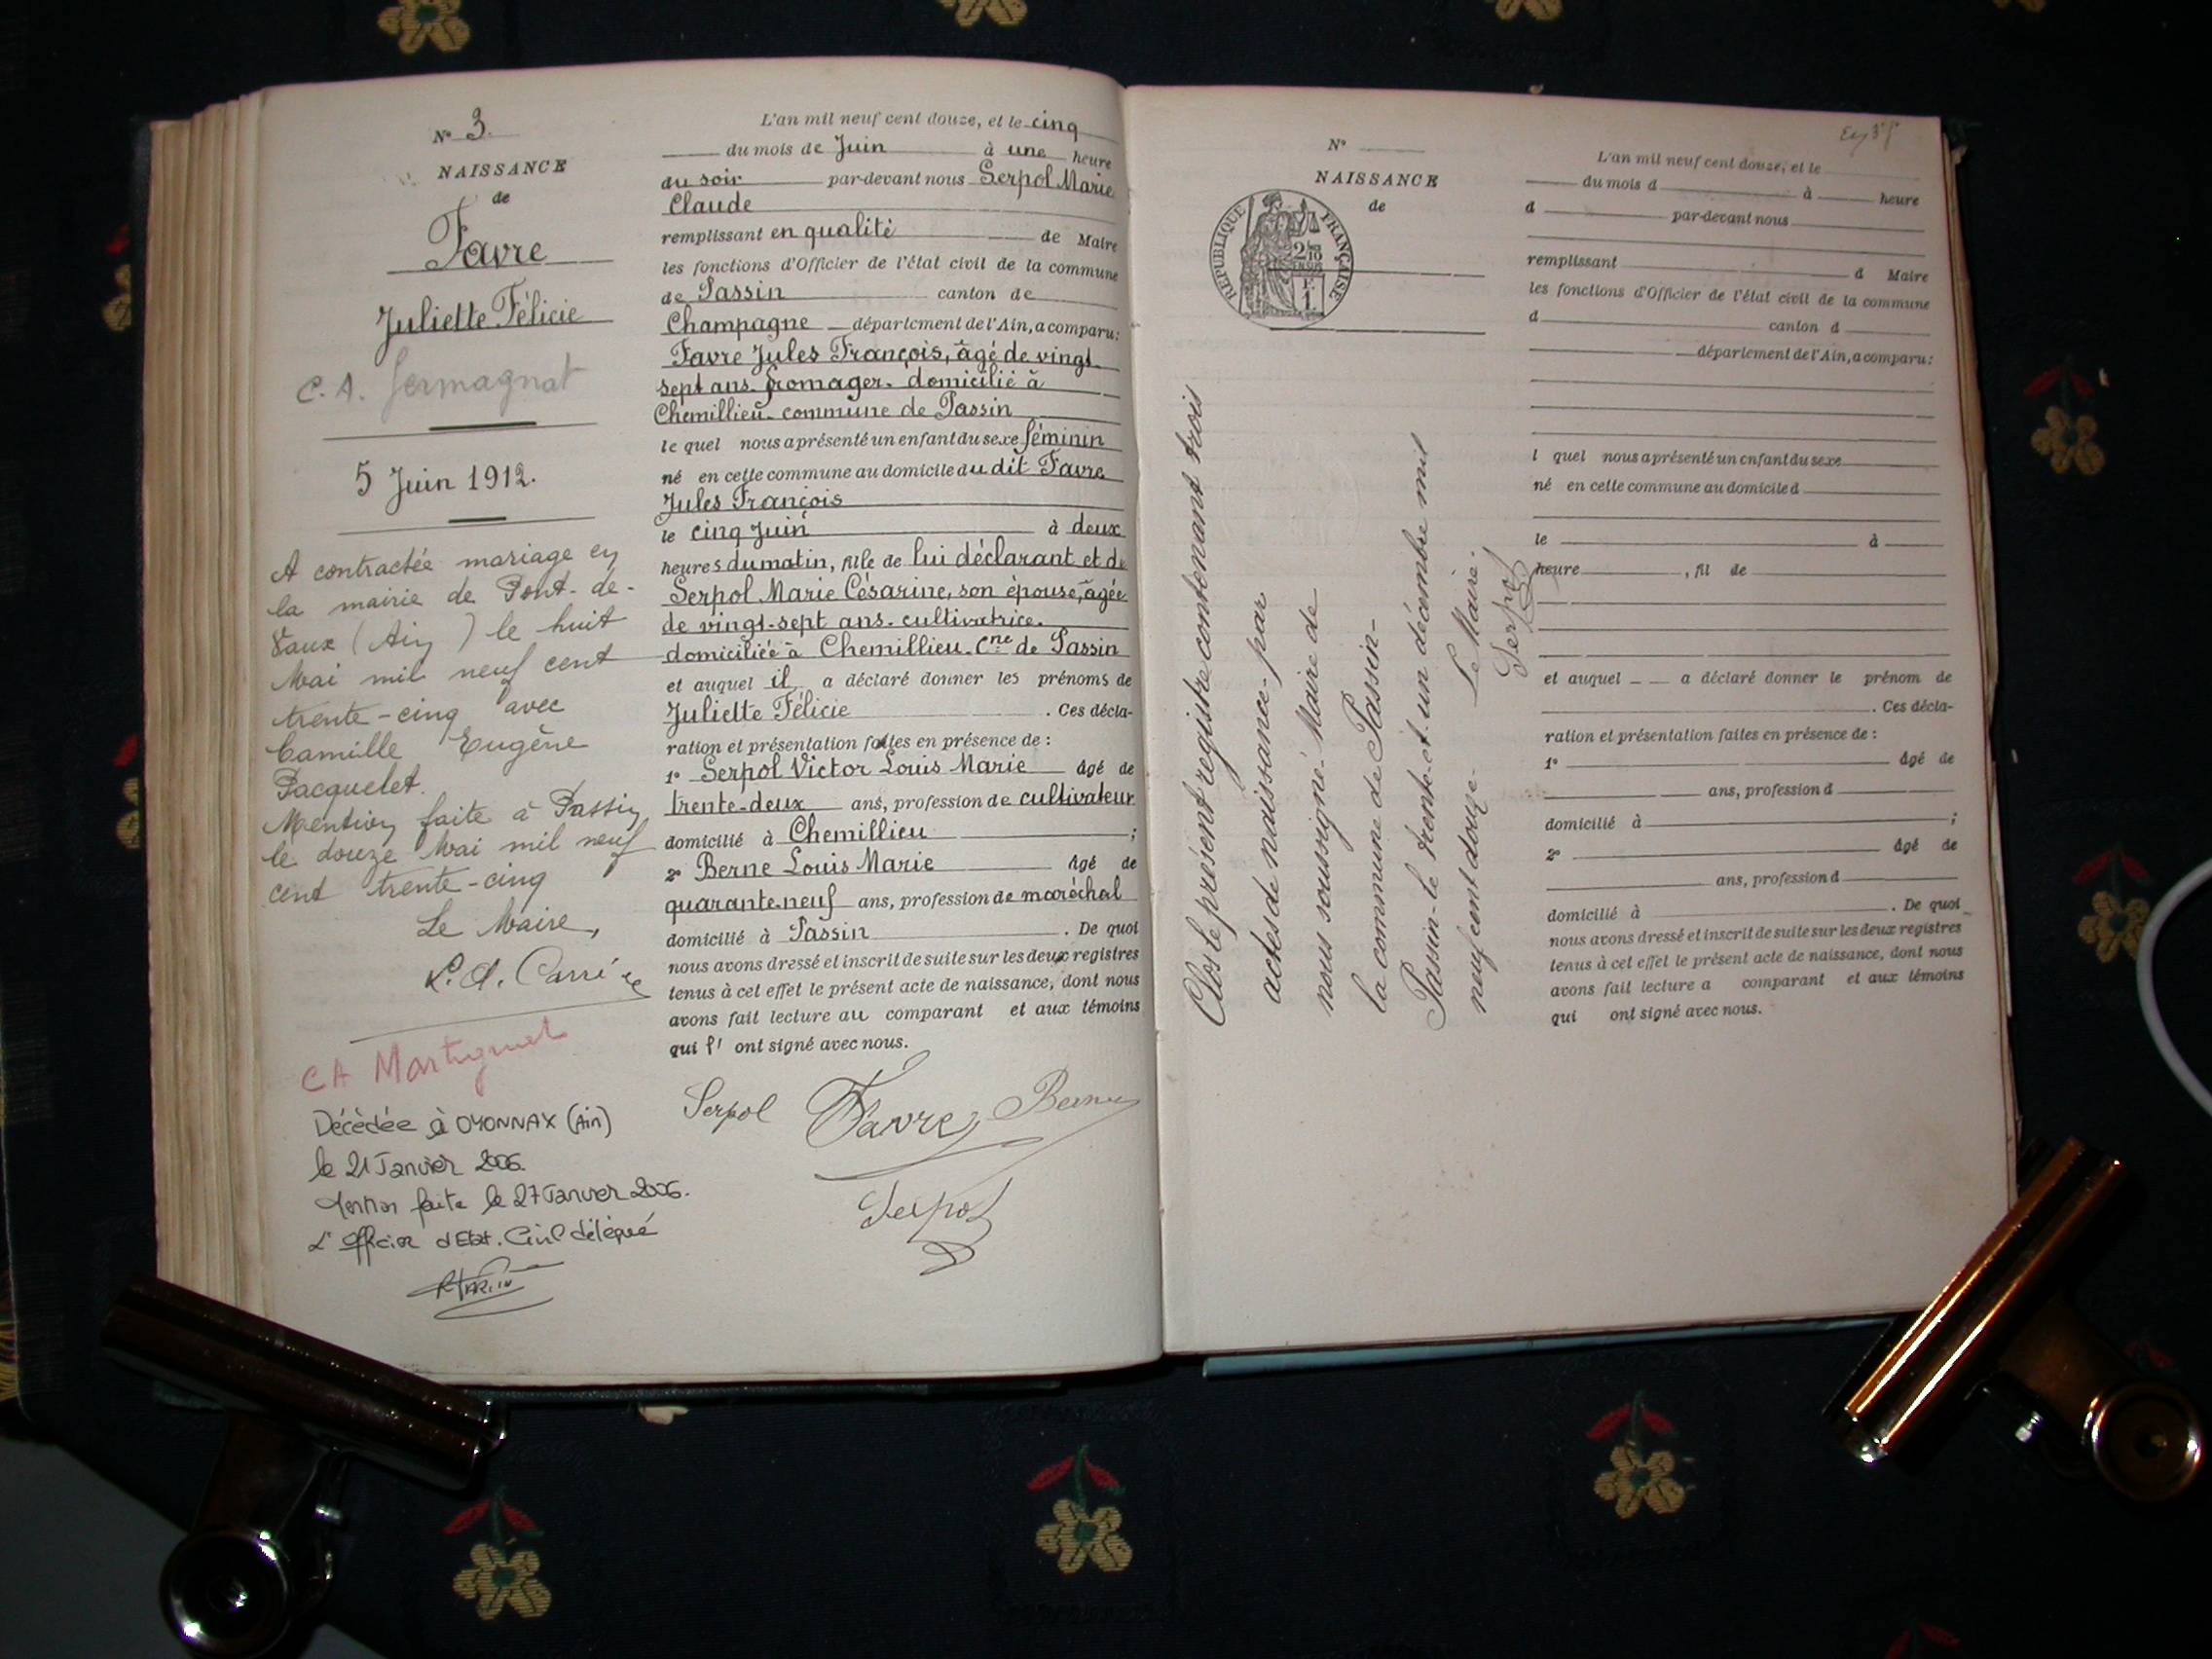 N° 3.
NAISSANCE
de
Favre
Juliette Félicie
C. A. Germagnat
5 Juin 1912.
A contractée mariage en
la mairie de Pont-de-
Vaux (Ain) le huit
Mai mil neuf cent
trente-cinq avec
Camille Eugène
Pacquelet.
Mention faite à Passin
le douze Mai mil neuf
cent trente-cinq
Le Maire,
CA Martignat
Décèdée à OYONNAX (Ain)
le 21 Janvier 2006.
Mention faite le 27 Janvier 2006.
L'Officier d'Etat. Civil délégué
L'an mil neuf cent douze, et le cinq
du mois de Juin à une heure
du soir par-devant nous Serpol Marie
Claude
remplissant en qualité de Maire
les fonctions d'Officier de l'état civil de la commune
de Passin canton de
Champagne département de l'Ain, a comparu:
Favre Jules François, âgé de vingt
sept ans. fromager. domicilié à
Chemillieu. commune de Passin
le quel nous a présenté un enfant du sexe féminin
né en cette commune au domicile du dit Favre
Jules François
le cinq Juin à deux
heures du matin, fille de lui déclarant et de
Serpol Marie Césarine, son épouse, âgée
de vingt-sept ans. cultivatrice.
domiciliée à Chemillieu. Cne de Passin
et auquel il a déclaré donner les prénoms de
Juliette Félicie . Ces décla-
ration et présentation faites en présence de :
1° Serpol Victor Louis Marie âgé de
trente-deux ans, profession de cultivateur
domicilié à Chemillieu ;
2° Berne Louis Marie âgé de
quarante-neuf ans, profession de maréchal
domicilié à Passin . De quoi
nous avons dressé et inscrit de suite sur les deux registres
tenus à cet effet le présent acte de naissance, dont nous
avons fait lecture au comparant et aux témoins
qui l' ont signé avec nous.
Serpol Favre Berne
Serpol
N°
NAISSANCE
de
RÉPUBLIQUE FRANÇAISE
Clos le présent registre contenant trois
actes de naissance par
nous soussigné Maire de
la commune de Passin-
Passin-le trente-et-un décembre mil
neuf cent douze-
Le Maire.
Serpol
L'an mil neuf cent douze, et le
du mois d à heure
d par-devant nous
remplissant d Maire
les fonctions d'Officier de l'état civil de la commune
d canton d
département de l'Ain, a comparu:
l quel nous a présenté un enfant du sexe
né en cette commune au domicile d
le à
heure , fil de
et auquel a déclaré donner le prénom de
. Ces décla-
ration et présentation faites en présence de :
1° âgé de
ans, profession d
domicilié à ;
2° âgé de
ans, profession d
domicilié à . De quoi
nous avons dressé et inscrit de suite sur les deux registres
tenus à cet effet le présent acte de naissance, dont nous
avons fait lecture a comparant et aux témoins
qui ont signé avec nous.